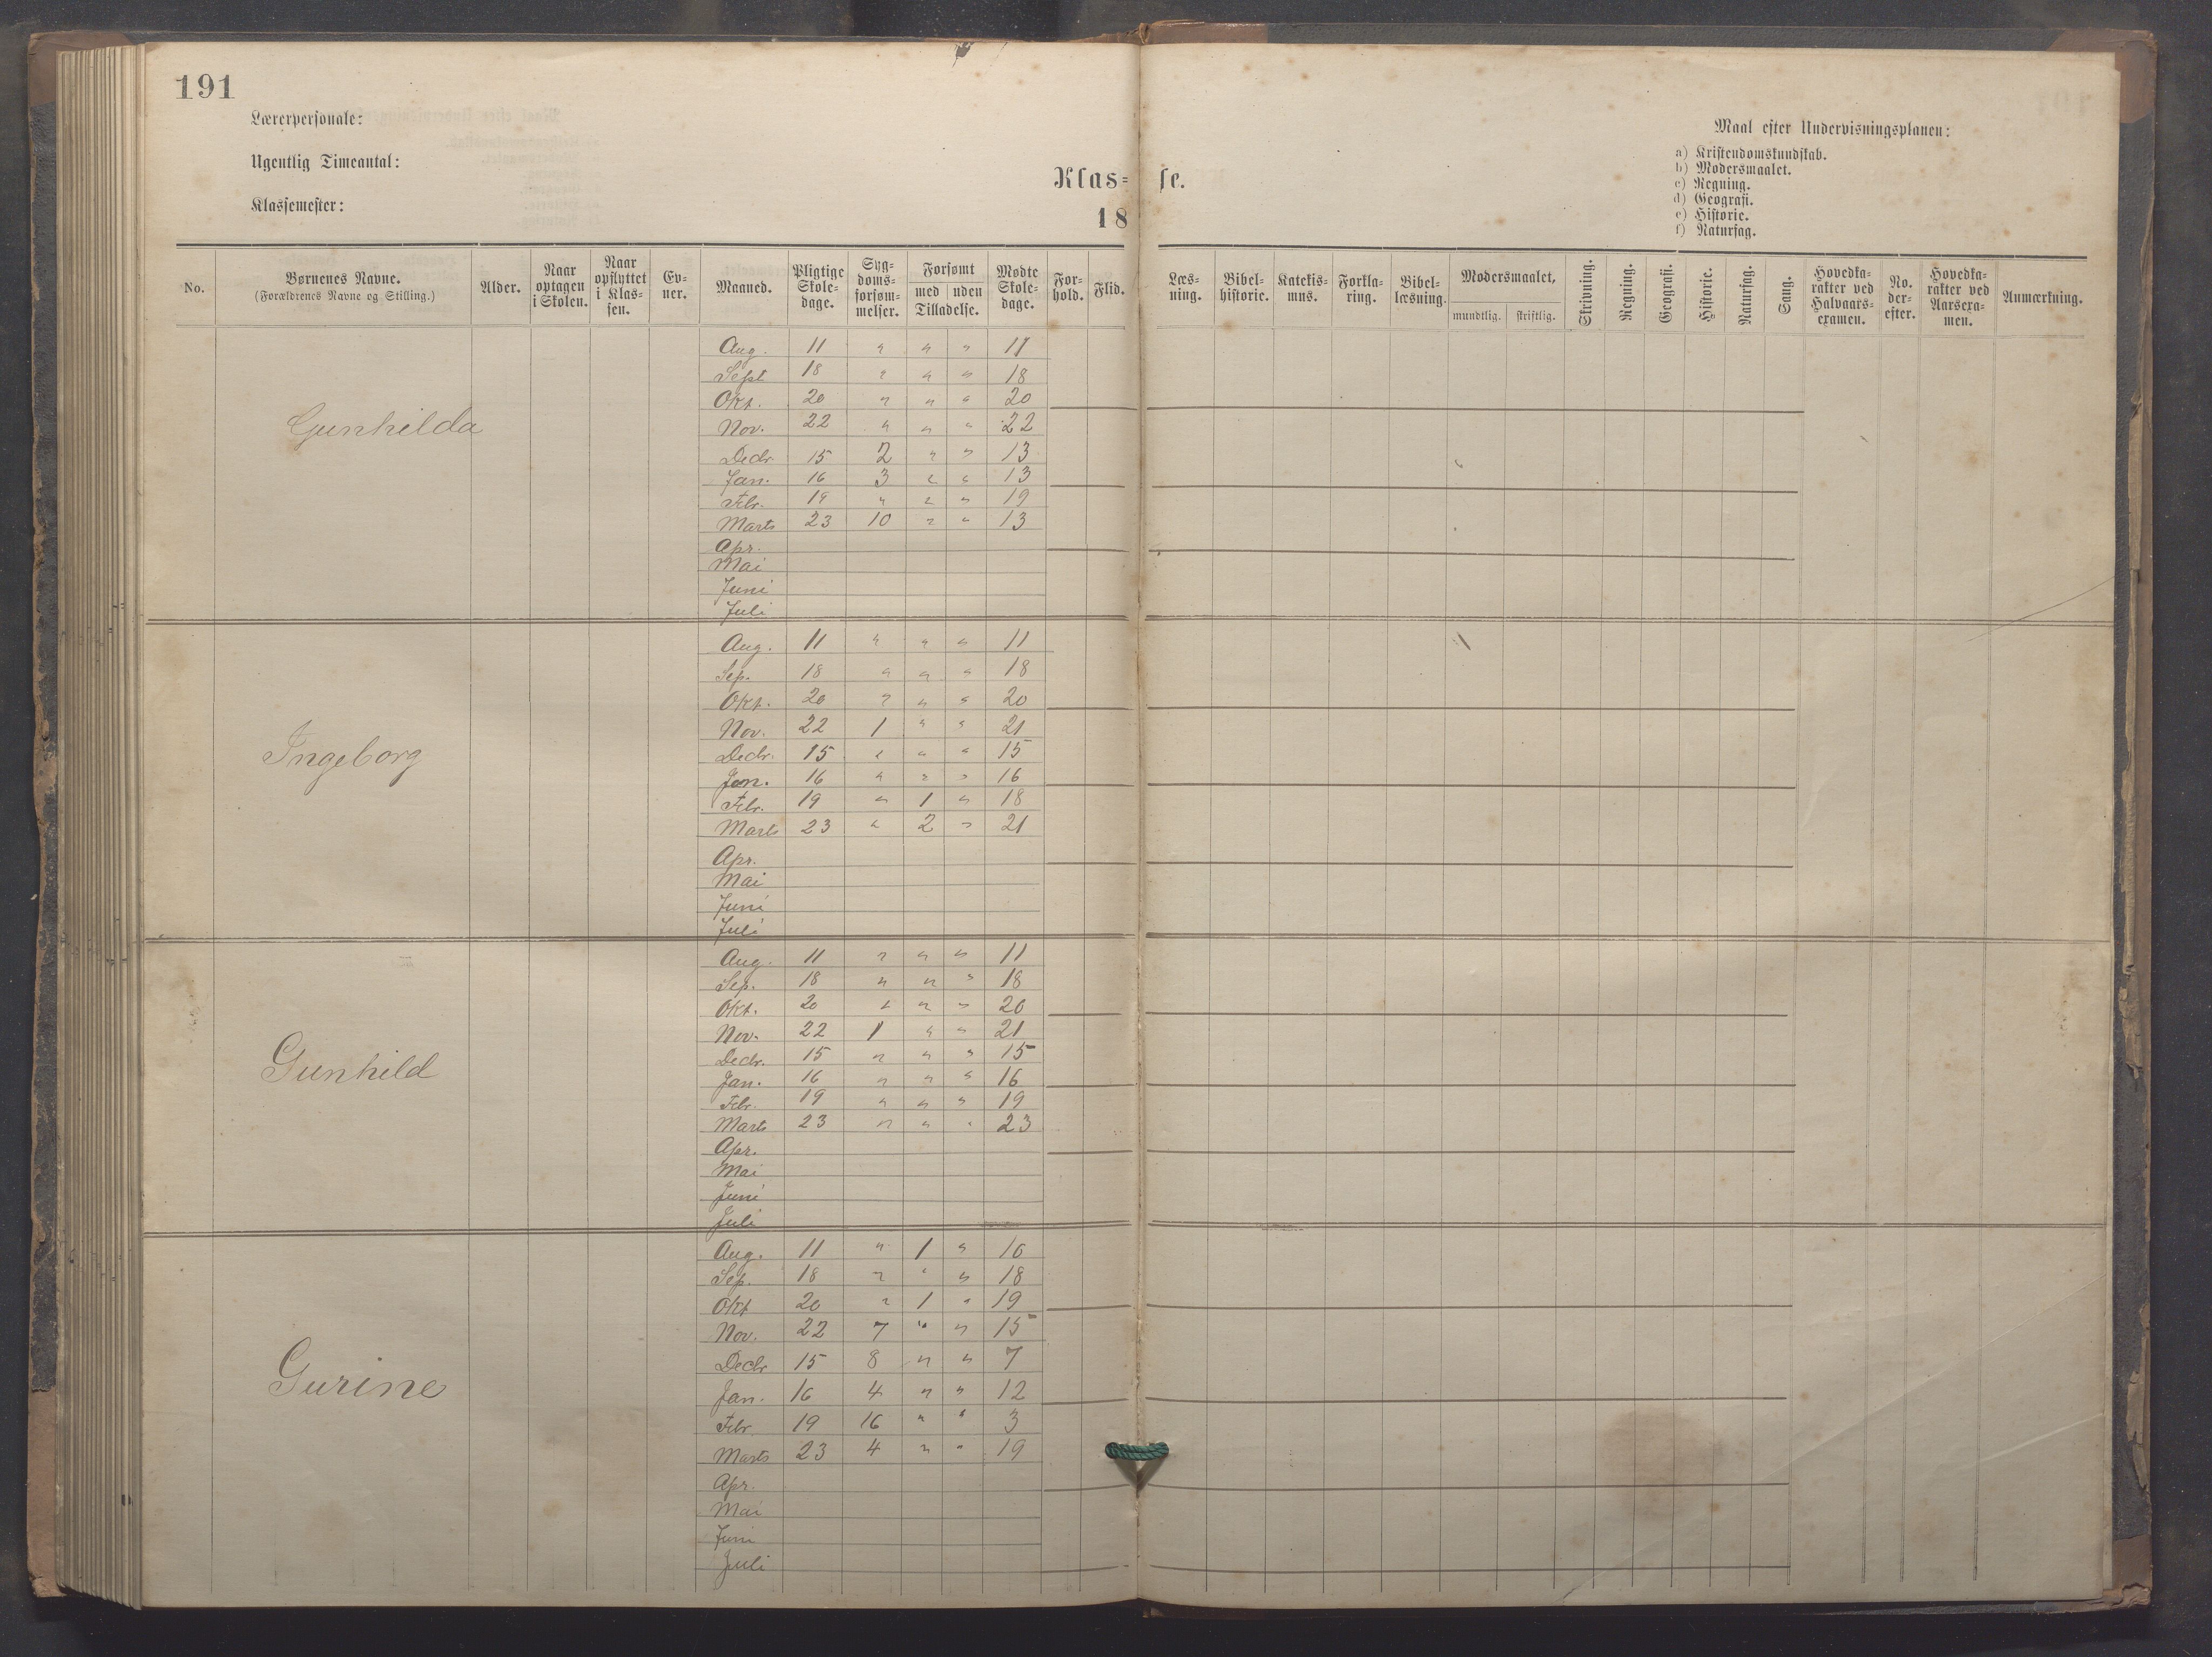 191
Lærerpersonale:
Ugentlig Timeantal:
Klassemester:
Klas= se.
18
Maal efter Undervisningsplanen:
a) Kristendomskundskab.
b) Modersmaalet.
c) Regning.
d) Geografi.
e) Historie.
f) Naturfag.
No. Børnenes Navne. (Forældrenes Navne og Stilling.) Alder. Naar optagen i Skolen. Naar opflyttet i Klas- sen. Ev- ner. Maaned. Pligtige Skole- dage. Syg- doms- forsøm- melser. Forsømt med uden Tilladelse. Mødte Skole- dage. For- hold. Flid. Læs- ning. Bibel- historie. Katekis- mus. Forkla- ring. Bibel- læsning. Modersmaalet. mundtlig. skriftlig. Skrivning. Regning. Geografi. Historie. Naturfag. Sang. Hovedka- rakter ved Halvaars- examen. No. der- efter. Hovedka- rakter ved Aarsexa- men. Anmærkning.
Gunhilda
Aug. 11 " " " 11
Sept 18 " " " 18
Okt. 20 " " " 20
Nov. 22 " " " 22
Decbr 15 2 " " 13
Jan. 16 3 " " 13
Febr. 19 " " " 19
Marts 23 10 " " 13
Apr.
Mai
Juni
Juli
Ingeborg
Aug. 11 " " " 11
Sep. 18 " " " 18
Okt. 20 " " " 20
Nov. 22 1 " " 21
Decbr. 15 " " " 15
Jan. 16 " " " 16
Febr. 19 " 1 " 18
Marts 23 " 2 " 21
Apr.
Mai
Juni
Juli
Gunhild
Aug. 11 " " " 11
Sep. 18 " " " 18
Okt. 20 " " " 20
Nov. 22 1 " " 21
Decbr. 15 " " " 15
Jan. 16 " " " 16
Febr. 19 " " " 19
Marts 23 " " " 23
Apr.
Mai
Juni
Juli
Gurine
Aug. 11 " 1 " 10
Sep. 18 " " " 18
Okt 20 " 1 " 19
Nov. 22 7 " " 15
Decbr 15 8 " " 7
Jan. 16 4 " " 12
Febr. 19 16 " " 3
Marts 23 4 " " 19
Apr.
Mai
Juni
Juli